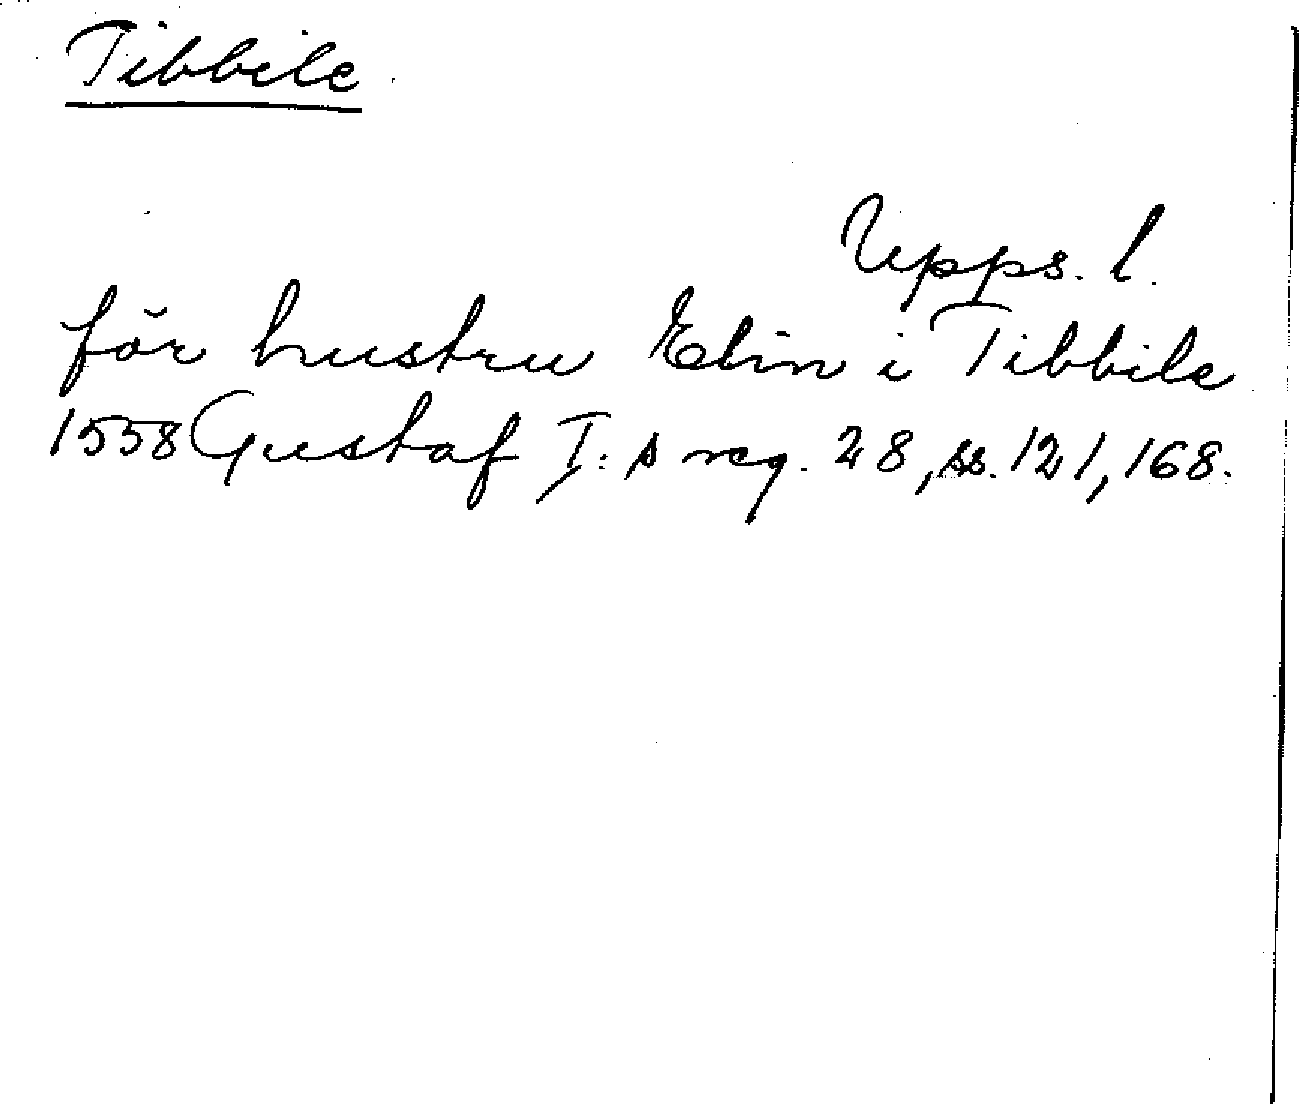 Tibbile
Upps. l.
för hustru Elin i Tibbile
1558 Gustaf I:s reg. 28, ss. 121, 168.